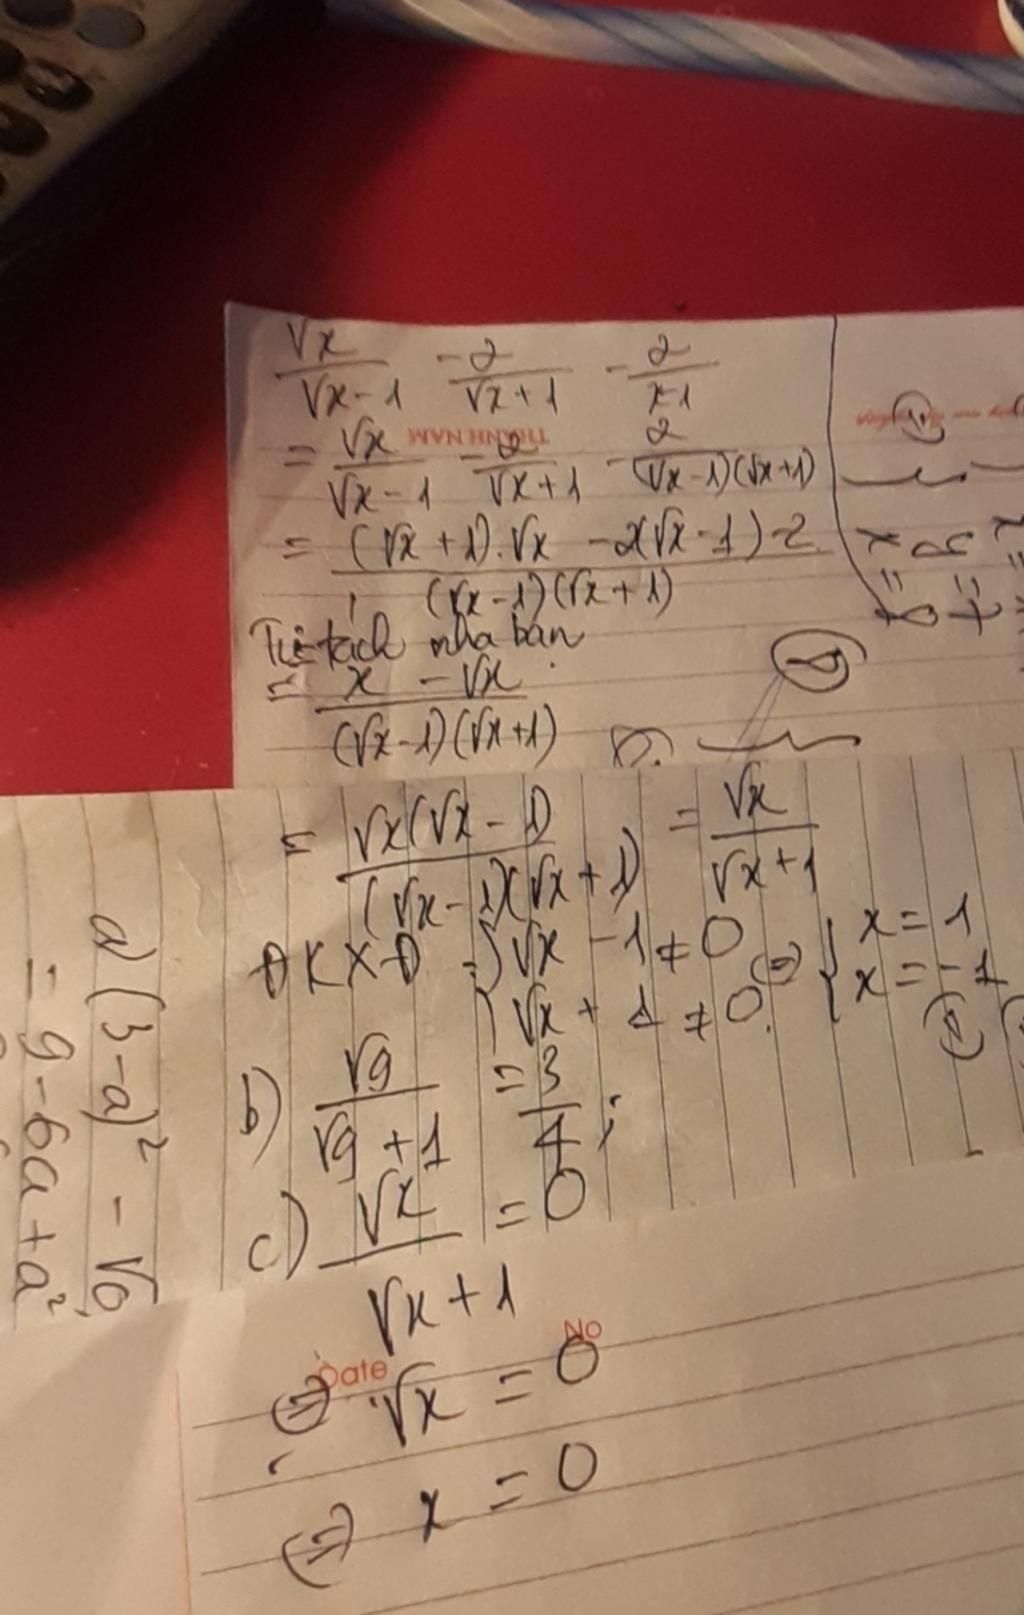 √x/(√x - 1) - 2/(√x + 1) - 2/(x-1)
THANH NAM
= √x/(√x - 1) - 2/(√x + 1) - 2/((√x - 1)(√x + 1))
= ((√x + 1).√x - 2(√x - 1) - 2)/((√x - 1)(√x + 1))
Tự tách nha bạn
= (x - √x)/((√x - 1)(√x + 1))
= √x(√x - 1)/((√x - 1)(√x + 1)) = √x/(√x + 1)
ĐKXĐ { √x - 1 ≠ 0 ⇔ { x = 1
√x + 1 ≠ 0. x = -1
b) √9/(√9 + 1) = 3/4 ;
c) √x/(√x + 1) = 0
Date No
⇔ √x = 0
⇔ x = 0
a) (3-a)² - √0
= 9 - 6a + a²